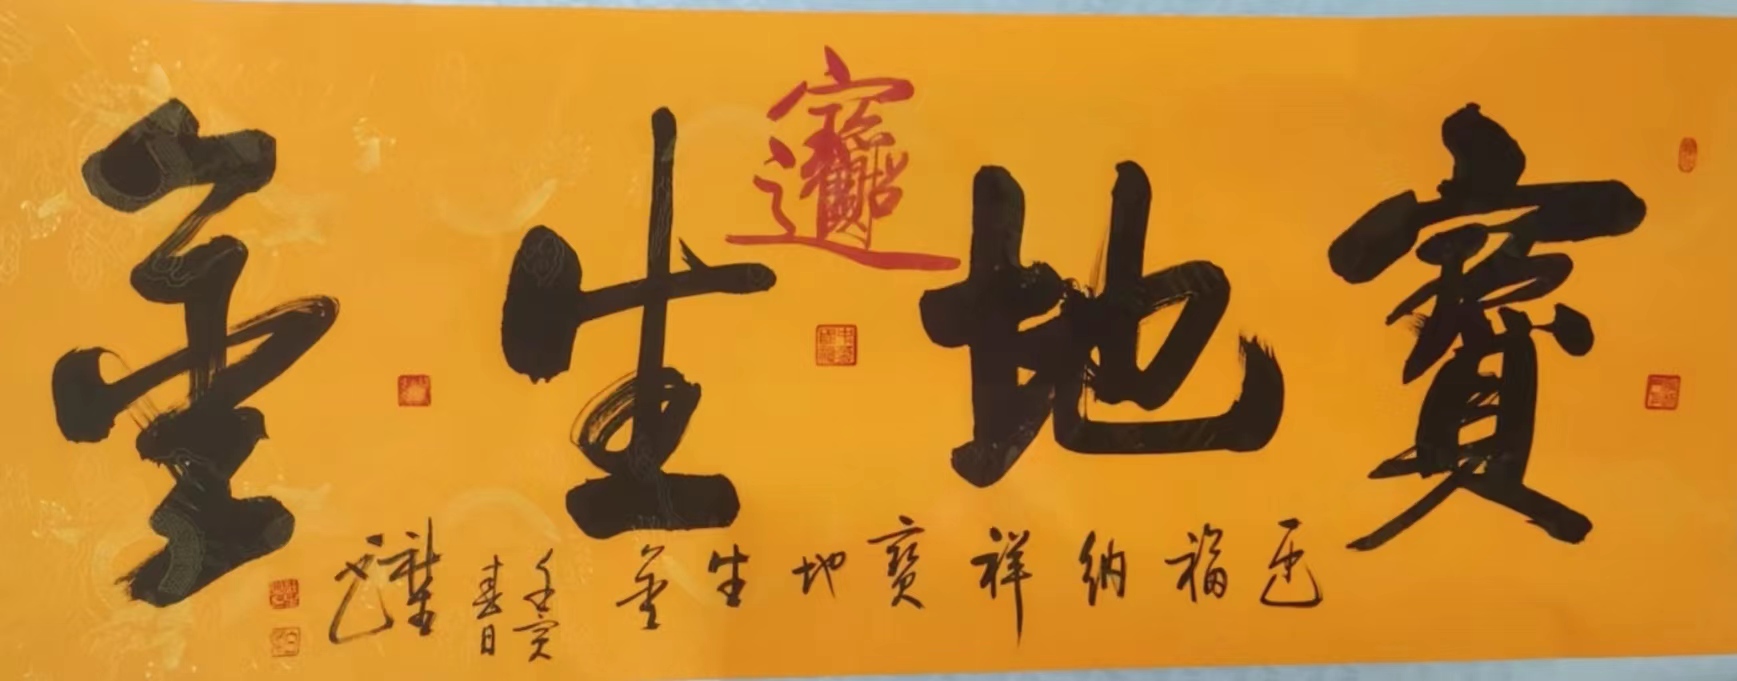 寶地生金
迎福納祥寶地生金
壬寅
春日